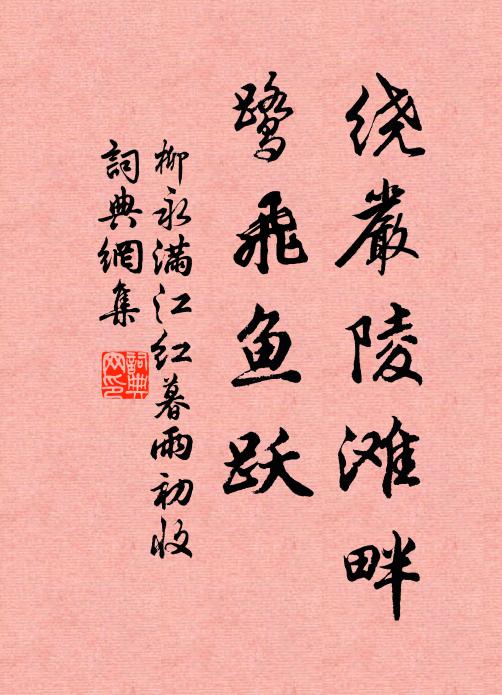 绕嚴陵滩畔
鹭飛鱼跃
柳永满江红暮雨初收
詞典網集
詞典網印